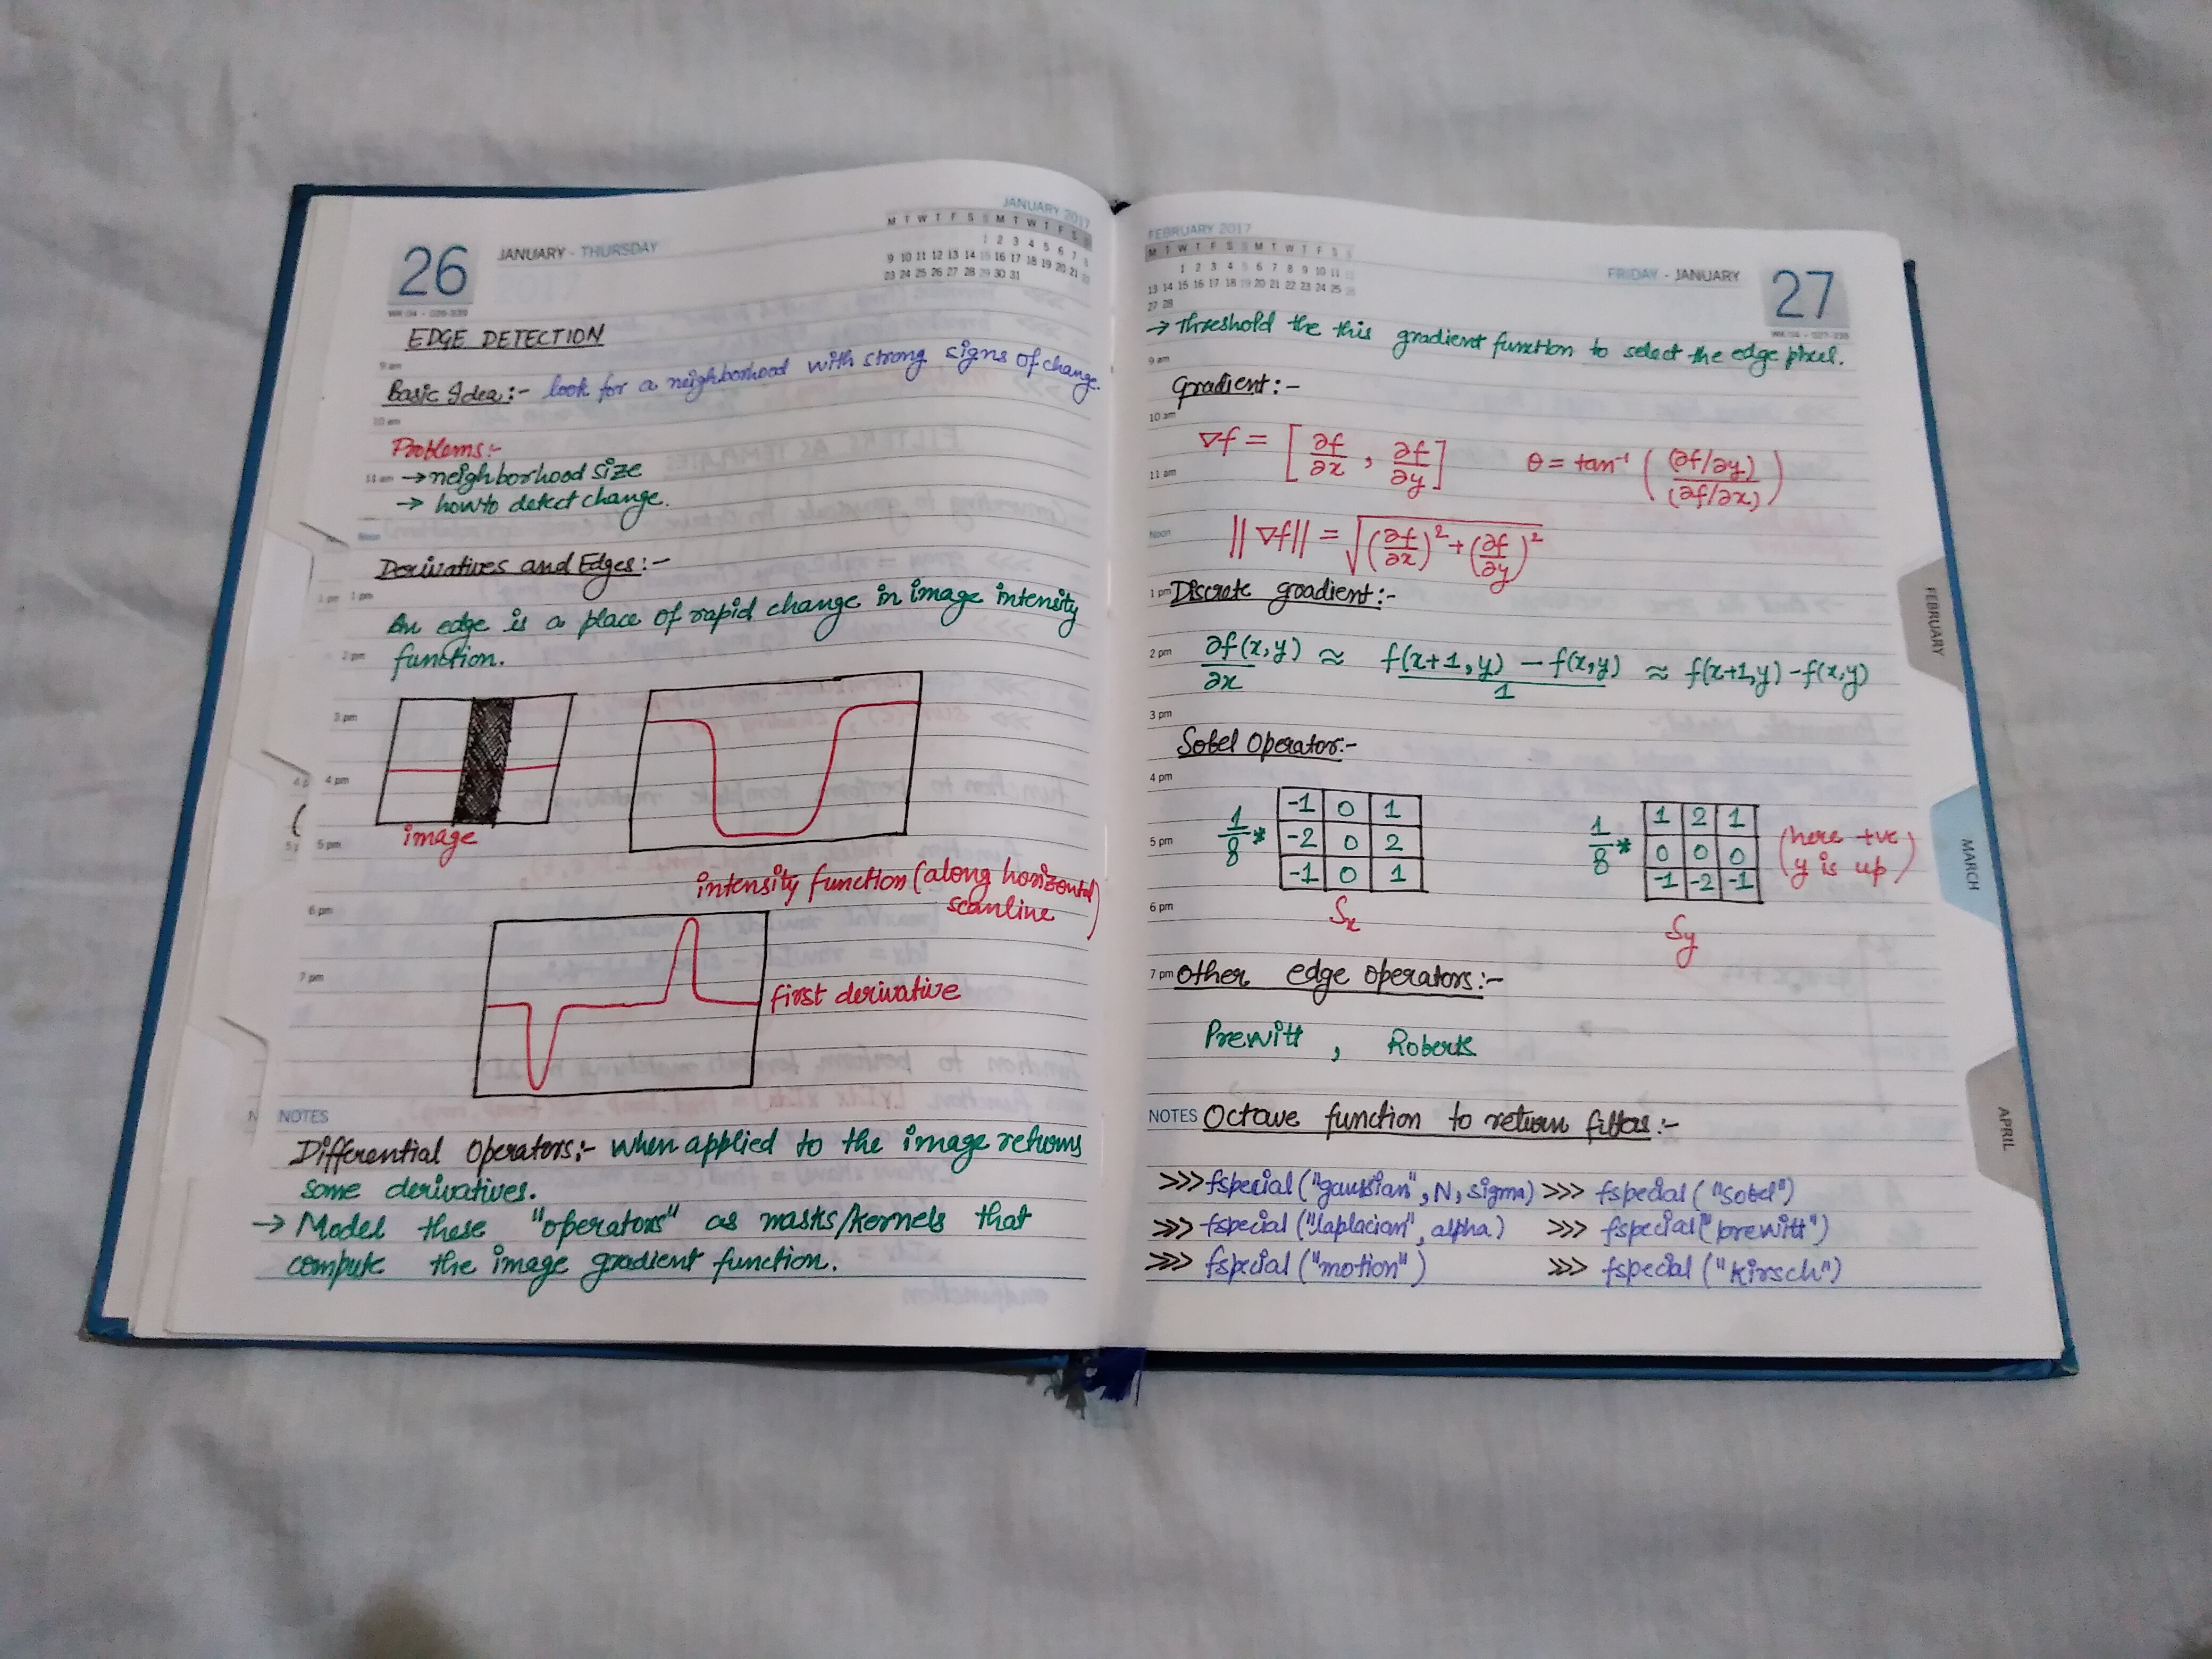 26
JANUARY - THURSDAY
JANUARY 2017
M T W T F S S M T W T F S S
1 2 3 4 5 6 7 8
9 10 11 12 13 14 15 16 17 18 19 20 21 22
23 24 25 26 27 28 29 30 31
EDGE DETECTION
9 am
Basic Idea:- look for a neighborhood with strong signs of change.
10 am
Problems:-
11 am → neighborhood size
→ how to detect change.
Noon
Derivatives and Edges:-
1 pm
An edge is a place of rapid change in image intensity
2 pm
function.
3 pm
4 pm
image
5 pm
intensity function (along horizontal
scanline)
6 pm
7 pm
first derivative
NOTES
Differential Operators:- when applied to the image returns
some derivatives.
→ Model these "operators" as masks/kernels that
compute the image gradient function.
FEBRUARY 2017
M T W T F S S M T W T F S S
1 2 3 4 5 6 7 8 9 10 11 12
13 14 15 16 17 18 19 20 21 22 23 24 25 26
27 28
FRIDAY - JANUARY
27
→ Threshold the this gradient function to select the edge pixel.
9 am
Gradient:-
10 am
∇f = [∂f/∂x , ∂f/∂y] θ = tan⁻¹ ((∂f/∂y)/(∂f/∂x))
11 am
Noon
||∇f|| = √((∂f/∂x)² + (∂f/∂y)²)
1 pm Discrete gradient:-
2 pm ∂f(x,y)/∂x ≈ f(x+1,y) - f(x,y)/1 ≈ f(x+1,y) - f(x,y)
3 pm
Sobel Operator:-
4 pm
-1 0 1
1/8 * -2 0 2
-1 0 1
Sx
1 2 1
1/8 * 0 0 0
-1 -2 -1
(here +ve
y is up)
Sy
5 pm
6 pm
7 pm Other edge operators:-
Prewitt , Roberts
NOTES Octave function to return filters:-
>>> fspecial("gaussian", N, sigma) >>> fspecial("sobel")
>>> fspecial("laplacian", alpha) >>> fspecial("prewitt")
>>> fspecial("motion") >>> fspecial("kirsch")
FEBRUARY
MARCH
APRIL